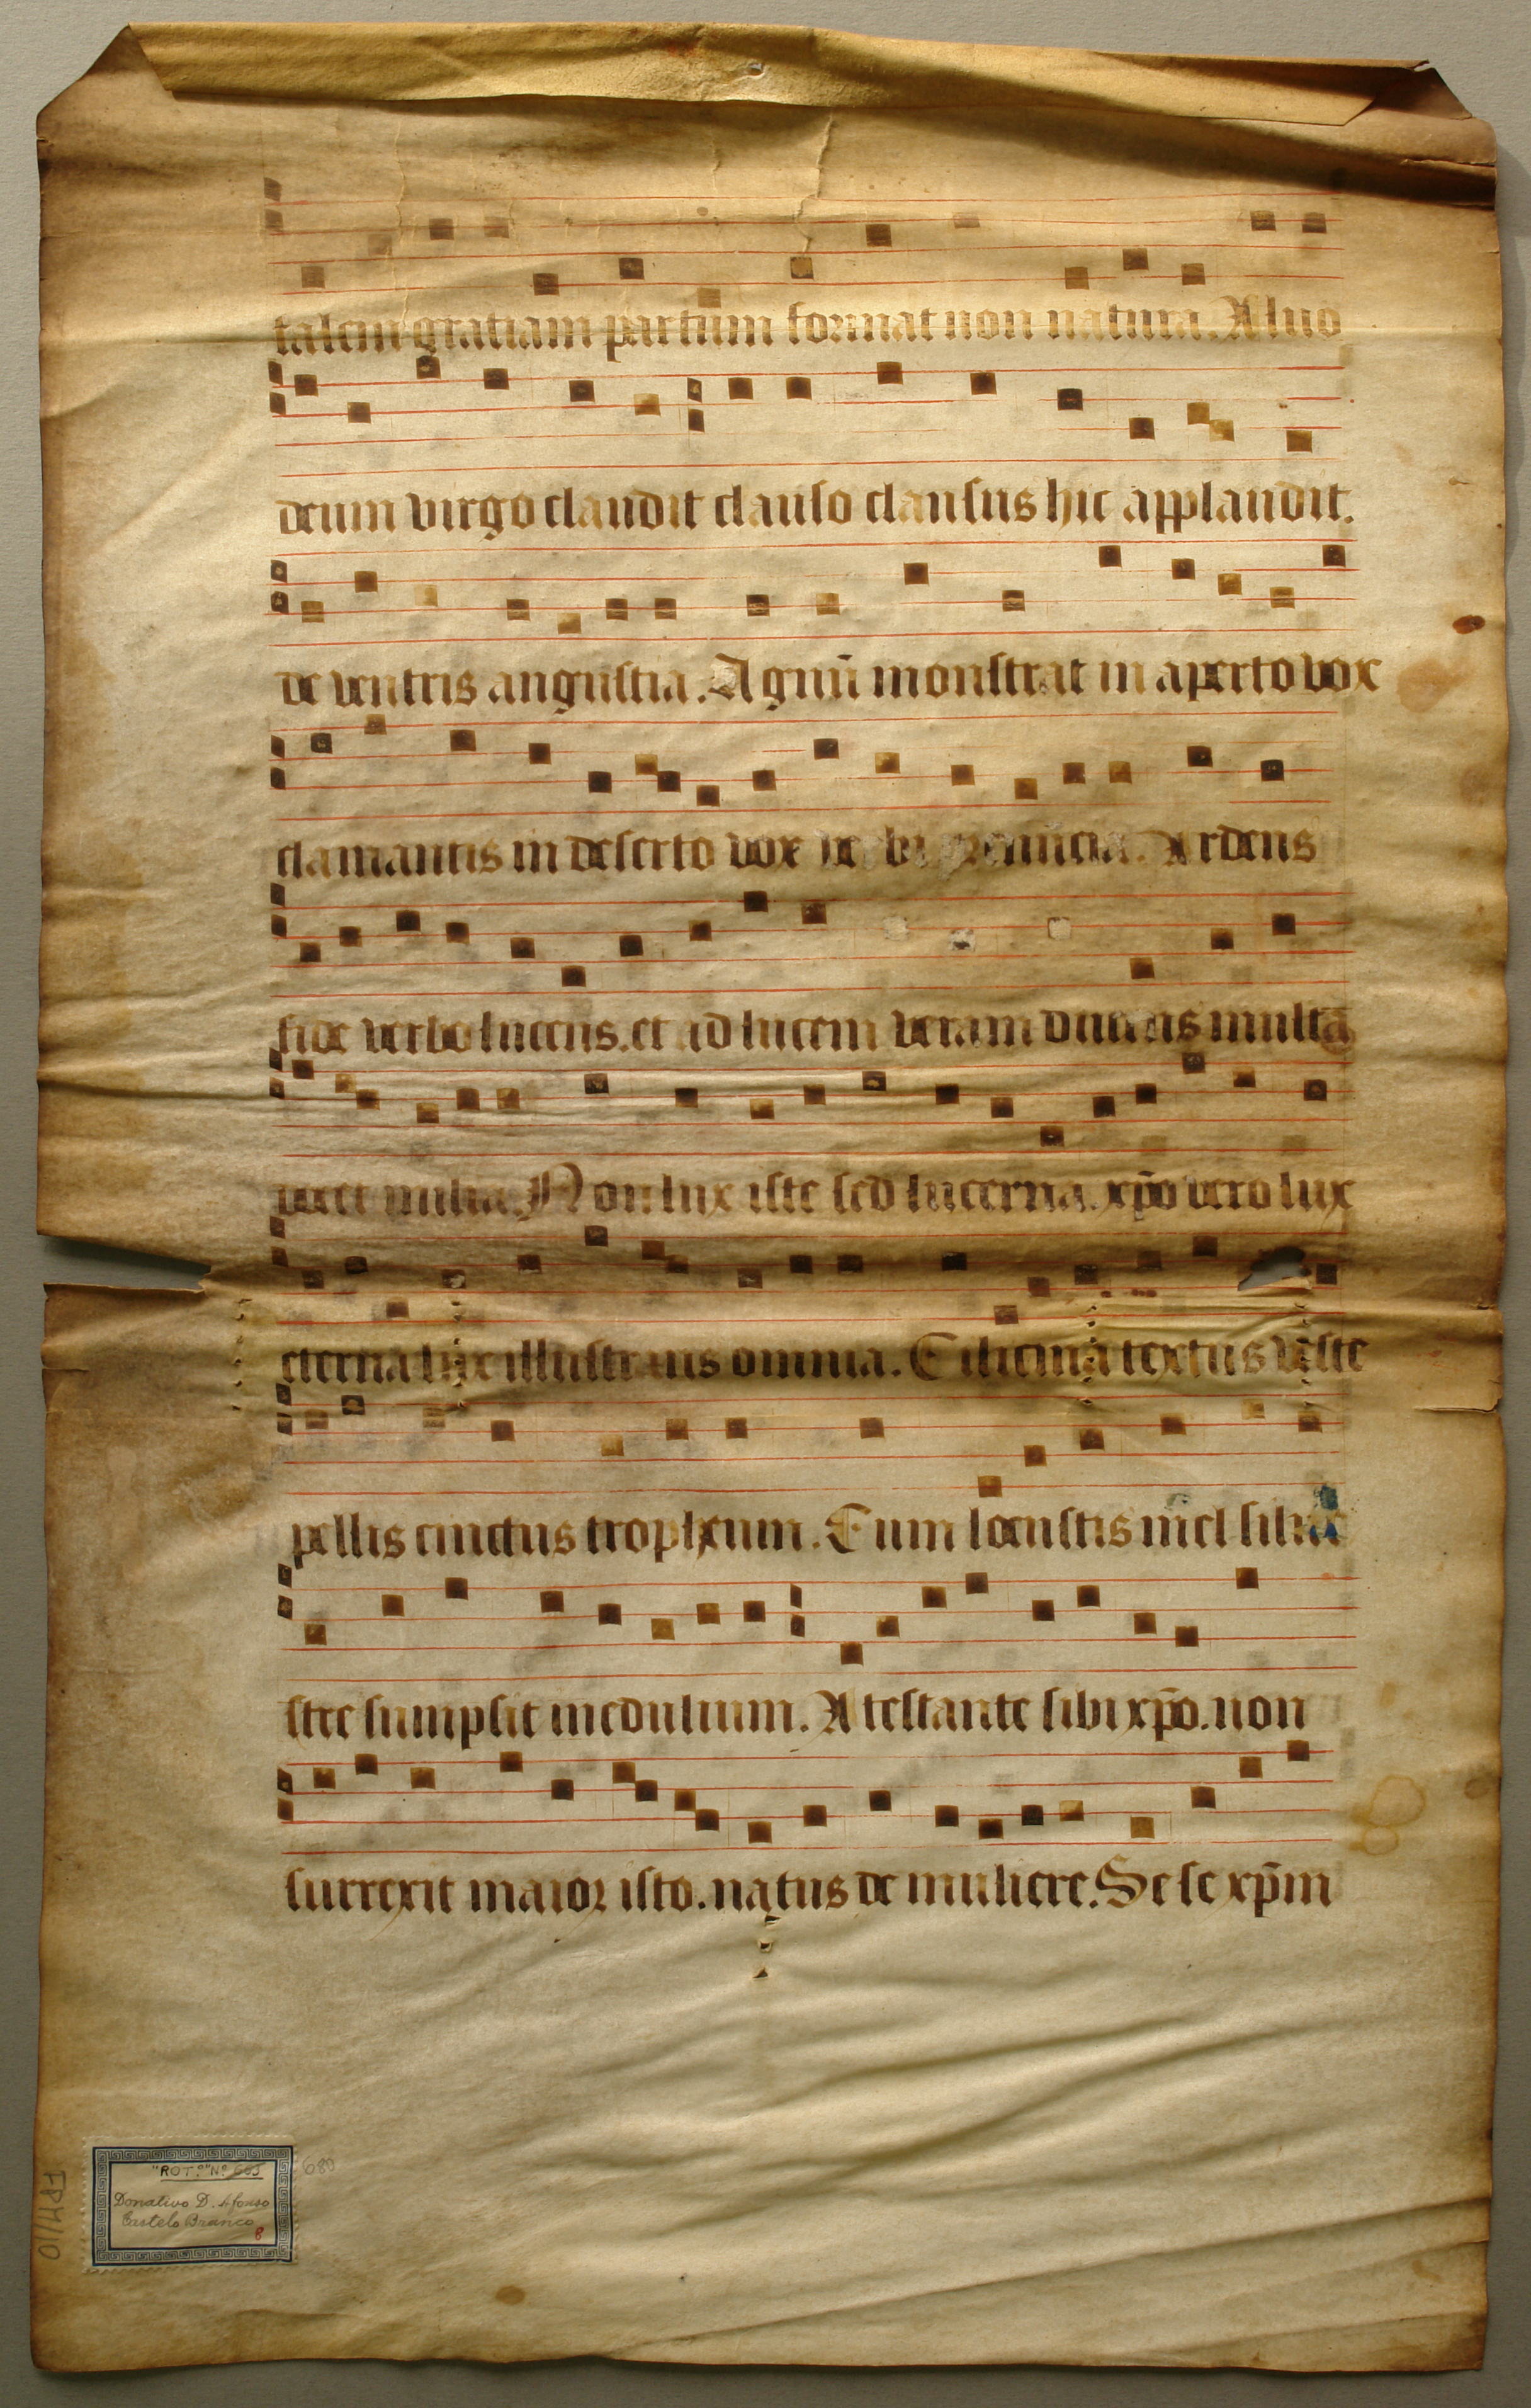 talem gratiam partum format non natura. Aluo
deum virgo claudit clauso clausus hic applaudit.
de ventris angustia. Agnū monstrat in aperto vox
clamantis in deserto vox Ardens
fide verbo lucens. et ad lucem veram ducens multa
docet milia. Non lux iste sed lucerna. xp̄o vero lux
eterna lux illustrans omnia. Cilicina textus veste
pellis cinctus tropheum. Cum locustis mel siluе
stre sumpsit medulium. Atestante sibi xp̄o. non
surrexit maior isto. natus de muliere. Se se xp̄m
"ROT.º" Nº 665
Donativo D. Afonso
Castelo Branco
8
680